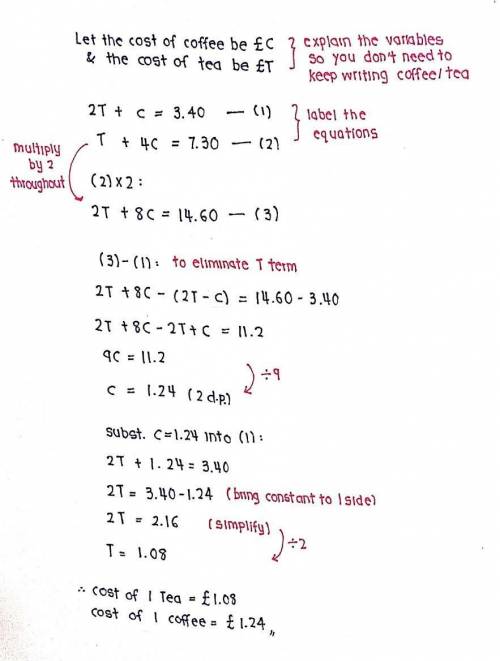 Let the cost of coffee be £C
& the cost of tea be £T
explain the variables
so you don't need to
keep writing coffee/tea
2T + C = 3.40 — (1)
T + 4C = 7.30 — (2)
label the
equations
multiply
by 2
throughout
(2)x2:
2T + 8C = 14.60 — (3)
(3)-(1): to eliminate T term
2T + 8C - (2T - C) = 14.60 - 3.40
2T + 8C - 2T + C = 11.2
9C = 11.2
÷9
C = 1.24 (2 d.p.)
subst. C=1.24 into (1):
2T + 1.24 = 3.40
2T = 3.40-1.24 (bring constant to 1 side)
2T = 2.16 (simplify)
÷2
T = 1.08
∴ cost of 1 Tea = £1.08
cost of 1 coffee = £1.24,,